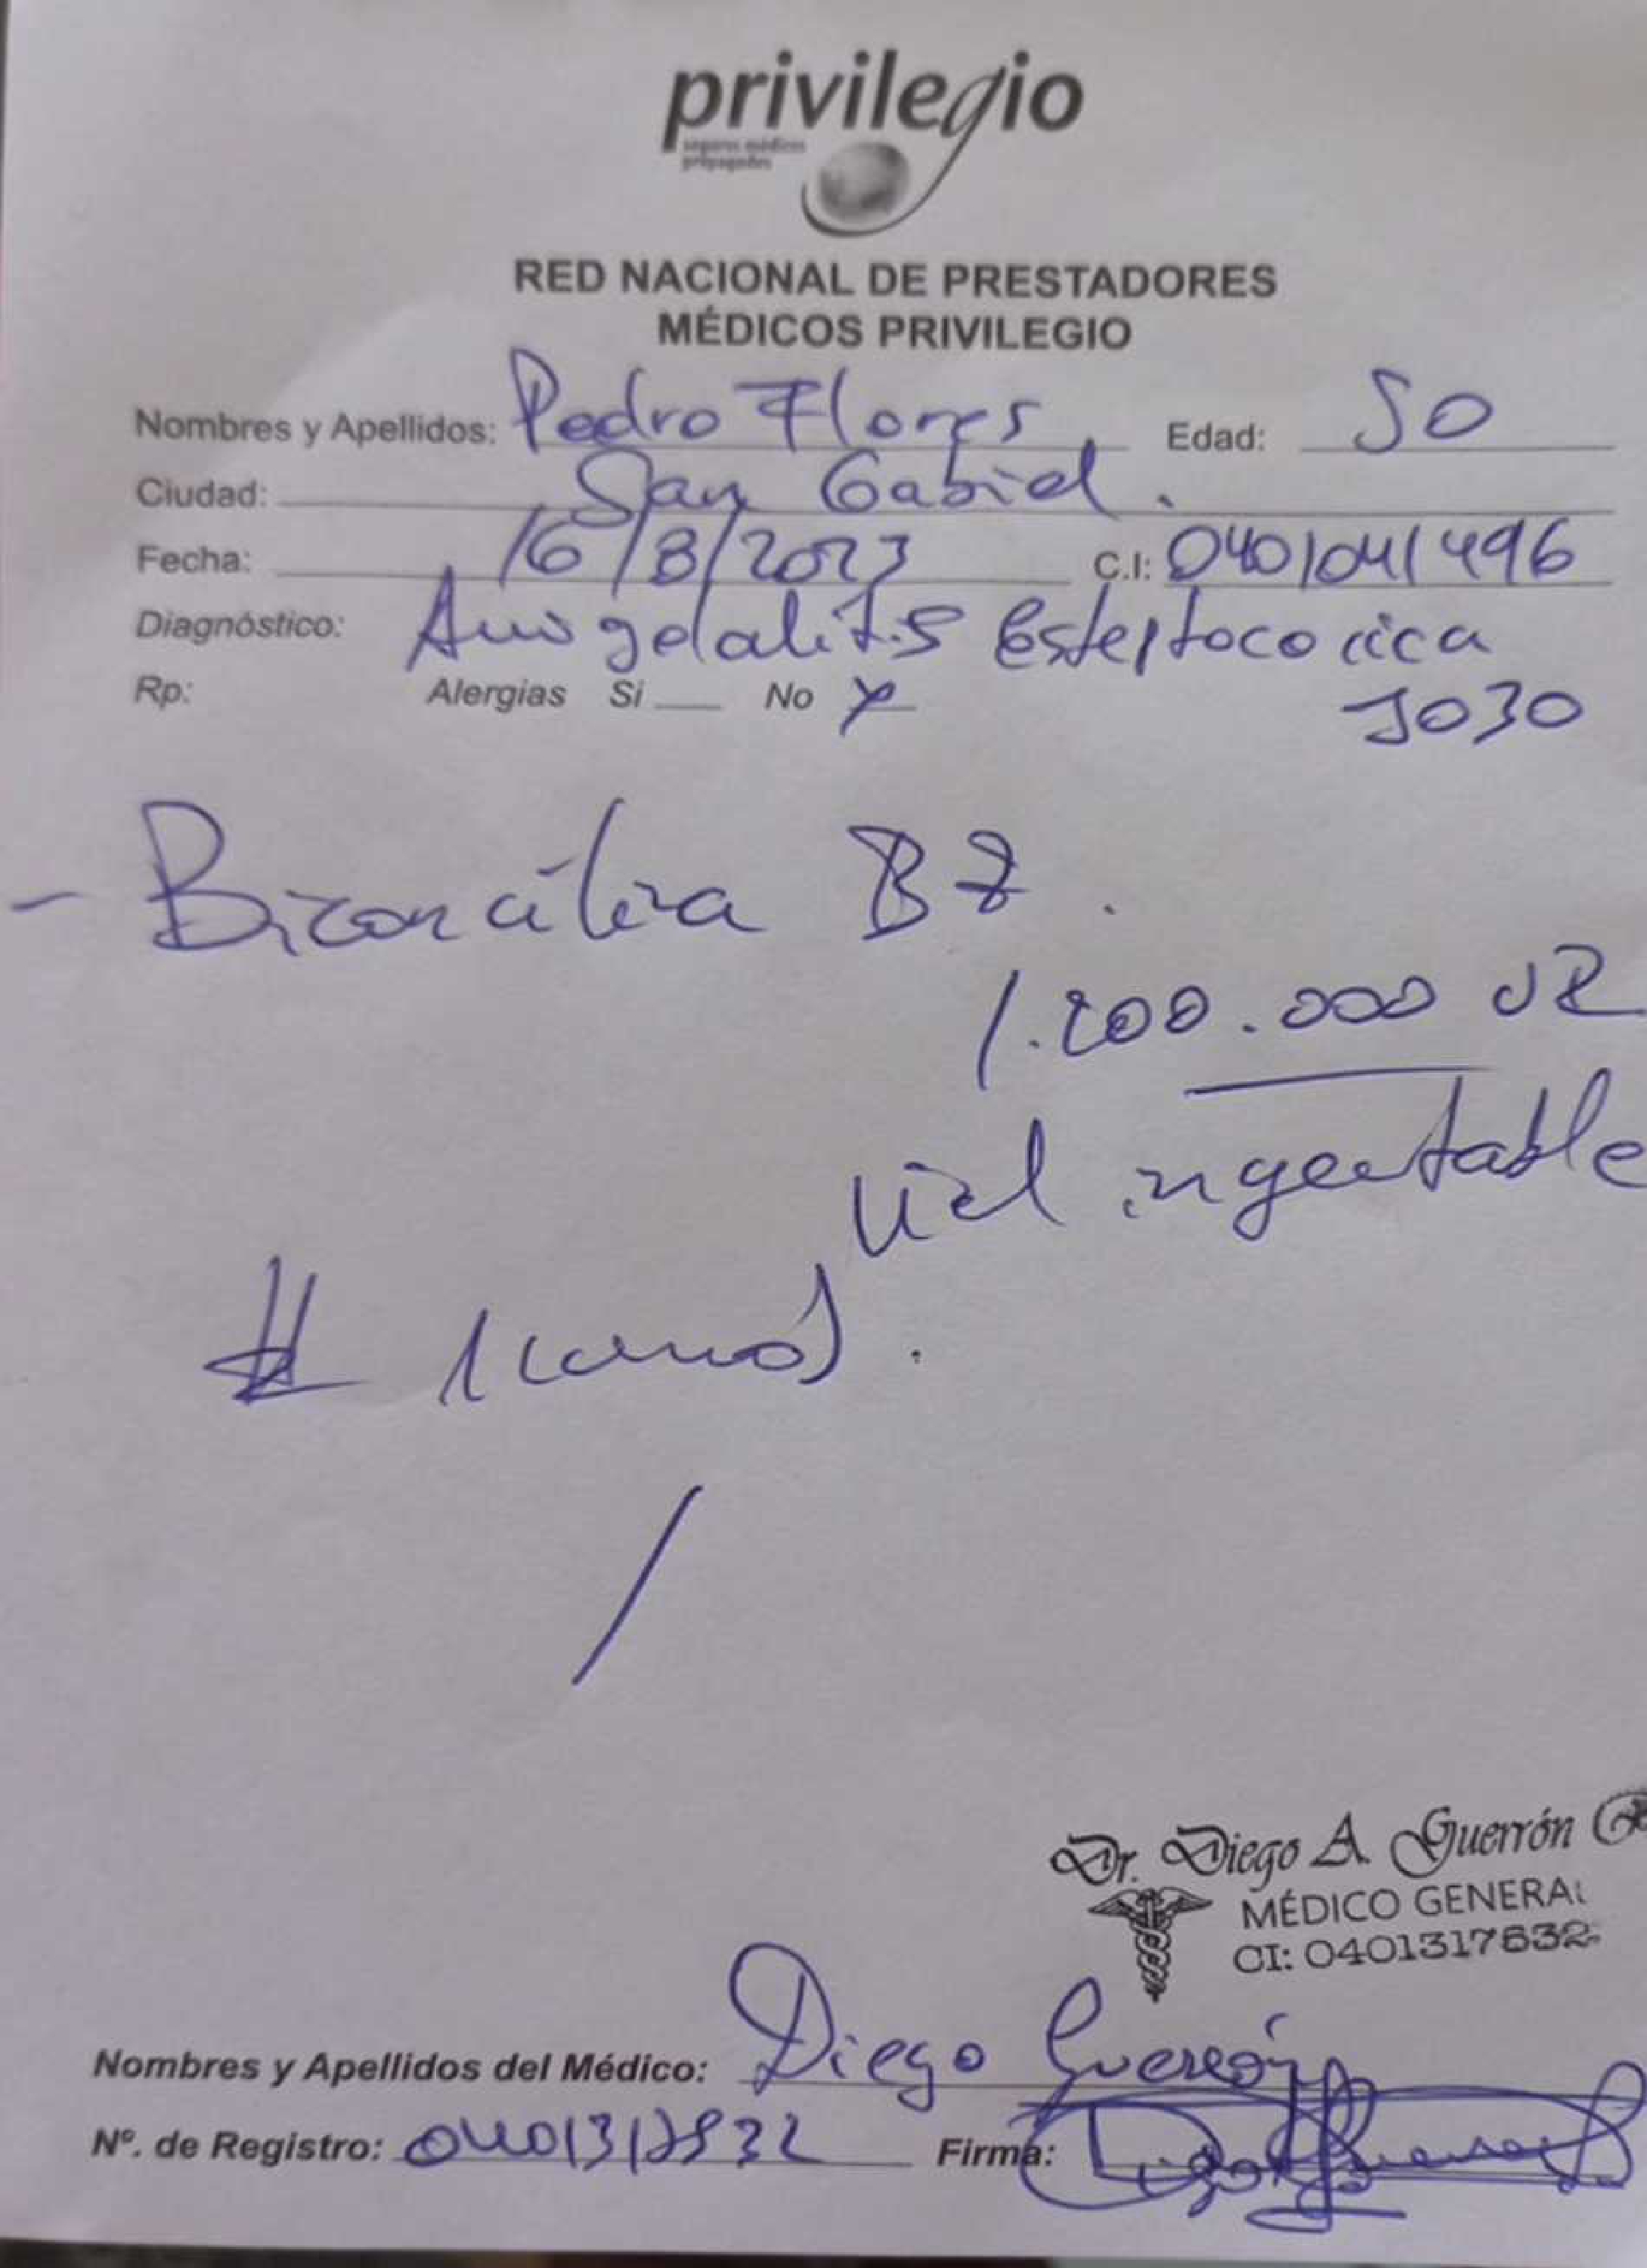 privilegio
seguros médicos
prepagados
RED NACIONAL DE PRESTADORES
MÉDICOS PRIVILEGIO
Nombres y Apellidos: Pedro Flores Edad: 50
Ciudad: San Gabriel.
Fecha: 16/8/2023 C.I: 0401041496
Diagnóstico: Amigdalitis Esteptococica
Rp: Alergias Si No X J030
- Bizoncilina BZ.
1.200.000 UI
vial ingectable
# 1 (uno).
Dr. Diego A. Guerrón
MÉDICO GENERAL
CI: 0401317832
Nombres y Apellidos del Médico: Diego Guerrón
Nº. de Registro: 0401317832 Firma: